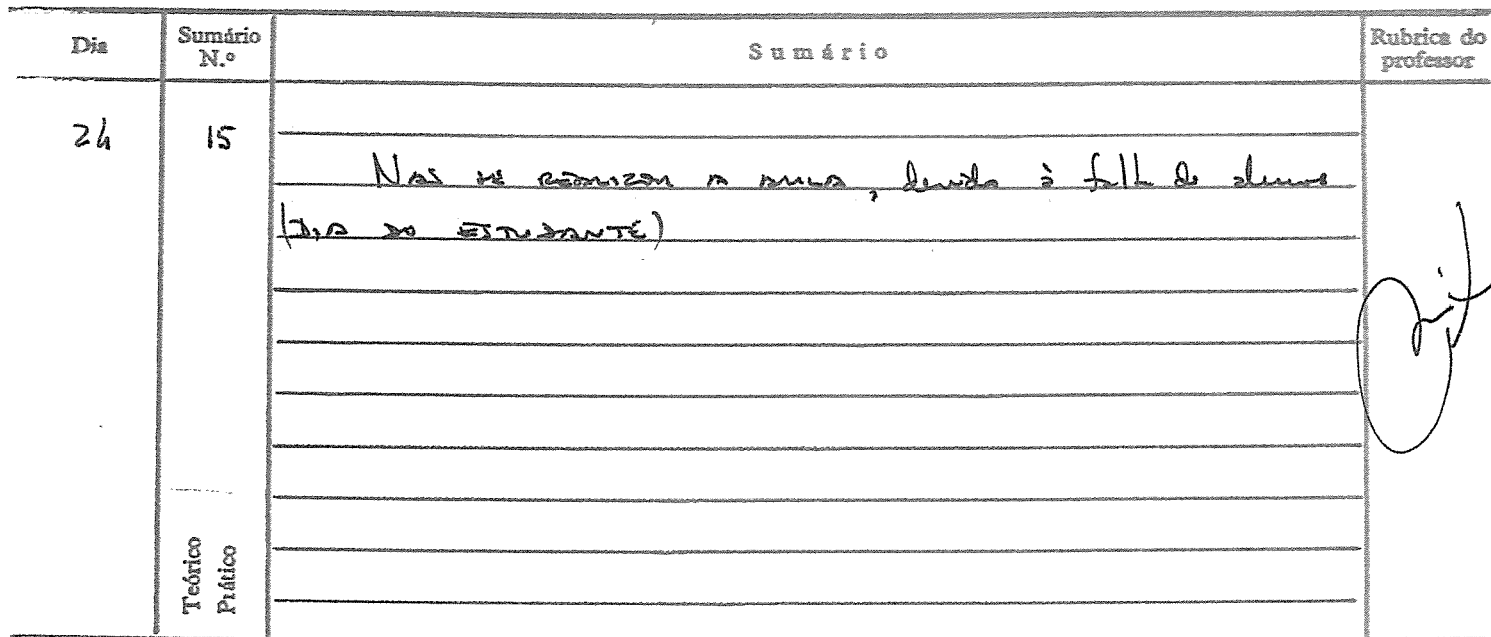 Dia
Sumário N.º
Sumário
Rubrica do professor
24
15
Não se realizou a aula, devido à falta de alunos
(DIA DO ESTUDANTE)
Teórico
Prático